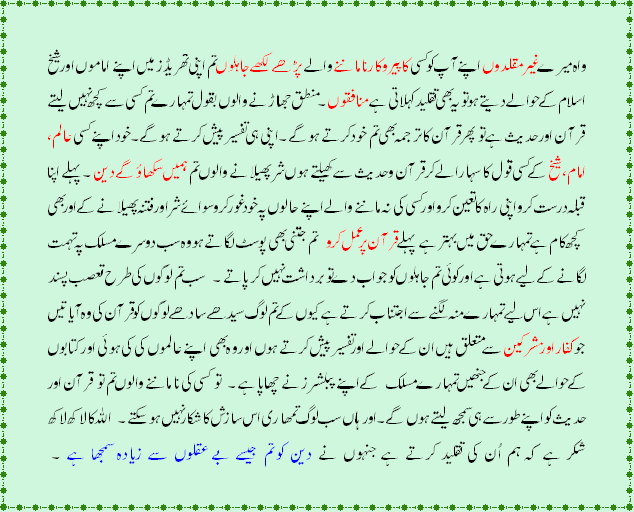 واہ میرے غیر مقلدوں اپنے آپ کو کسی کا پیروکار نا ماننے والے پڑھے لکھے جاہلوں تم اپنی تھریڈز میں اپنے اماموں اور شیخ
اسلام کے حوالے دیتے ہو تو یہ بھی تقلید کہلاتی ہے منافقوں ۔ منطق جھاڑنے والوں بقول تمہارے تم کسی سے کچھ نہیں لیتے
قرآن اور حدیث ہے تو پھر قرآن کا ترجمہ بھی تم خود کرتے ہو گے ۔ اپنی ہی تفسیر پیش کرتے ہو گے ۔ خود اپنے کسی عالم ،
امام ، شیخ کے کسی قول کا سہارا لے کر قرآن و حدیث سے کھیلتے ہوں شر پھیلانے والوں تم ہمیں سکھاؤ گے دین ۔ پہلے اپنا
قبلہ درست کرو اپنی راہ کا تعین کرو اور کسی کی نہ ماننے والے اپنے حالوں پہ خود غور کرو سوائے شر اور فتنہ پھیلانے کے اور بھی
کچھ کام ہے تمہارے حق میں بہتر ہے پہلے قرآن پر عمل کرو تم جتنی بھی پوسٹ لگاتے ہو وہ سب دوسرے مسلک پہ تہمت
لگانے کے لیے ہوتی ہے اور کوئی تم جاہلوں کو جواب دے تو برداشت نہیں کر پاتے ۔ سب تم لوکوں کی طرح تعصب پسند
نہیں ہے اس لیے تمہارے منہ لگنے سے اجتناب کرتے ہے کیوں کے تم لوگ سیدھے سادھے لوکوں کو قرآن کی وہ آیاتیں
جو کفار اور مشرکین سے متعلق ہیں ان کے حوالے اور تفسیر پیش کرتے ہوں اور وہ بھی اپنے عالموں کی کی ہوئی اور کتابوں
کے حوالے بھی ان کے جنھیں تمہارے مسلک کے اپنے پبلشرز نے چھاپا ہے ۔ تو کسی کی نا ماننے والوں تم تو قرآن اور
حدیث کو اپنے طور سے ہی سمجھ لیتے ہوں گے ۔ اور ہاں سب لوگ تمھاری اس سازش کا شکار نہیں ہو سکتے ۔ اللہ کا لاکھ لاکھ
شکر ہے کہ ہم اُن کی تقلید کرتے ہے جنہوں نے دین کو تم جیسے بے عقلوں سے زیادہ سمجھا ہے ۔